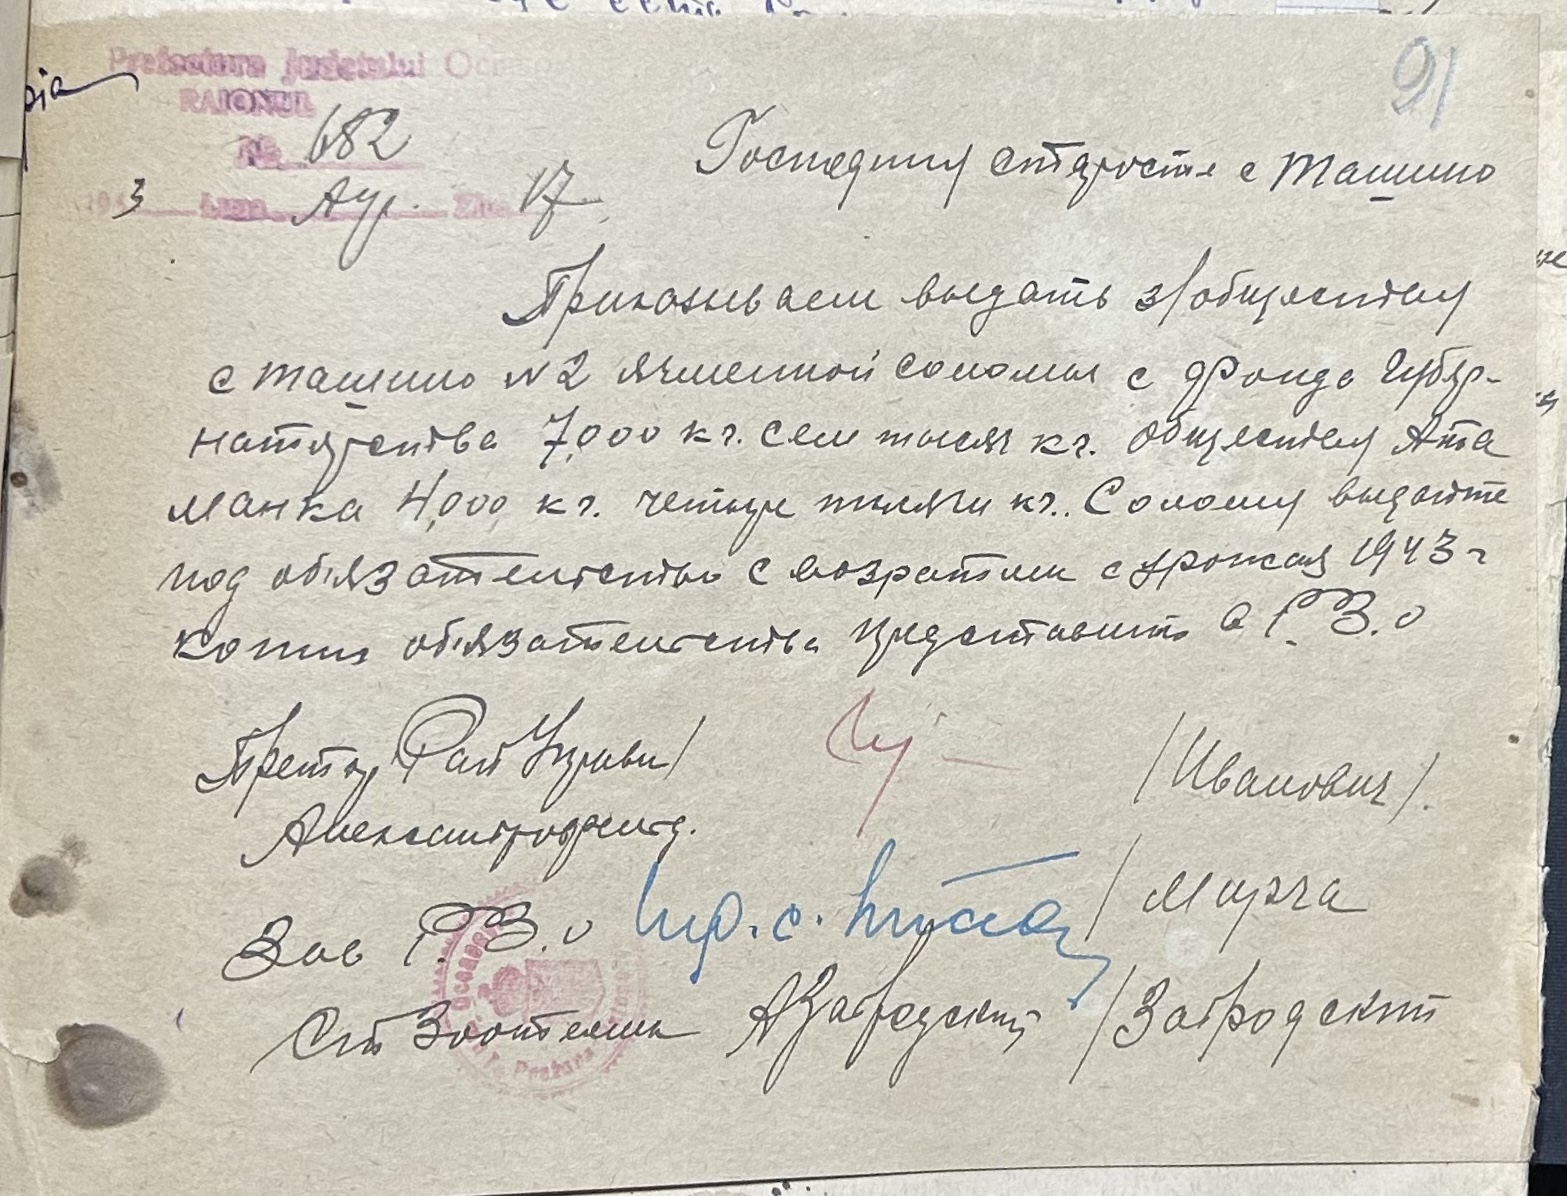 91
Prefectura Judetului
RAIONUL
№ 682
1943 Luna Apr. Ziua 17
Господину старосте с Ташино
Приказываем выдать з/обществу
с Ташино №2 ячменной соломы с фонда Губер-
натерства 7,000 кг. сем тысяч кг. обществу Ата
манка 4,000 кг. четыре тысячи кг. Солому выдайте
под обязательство с возвратом с урожая 1943 г
копию обязательства представить в Р.З.О
Претор Рай Управы / /Иванович/.
Александрфельд.
Зав Р.З.О / Мурга
Ст Зоотехник АЗагродский /Загродский